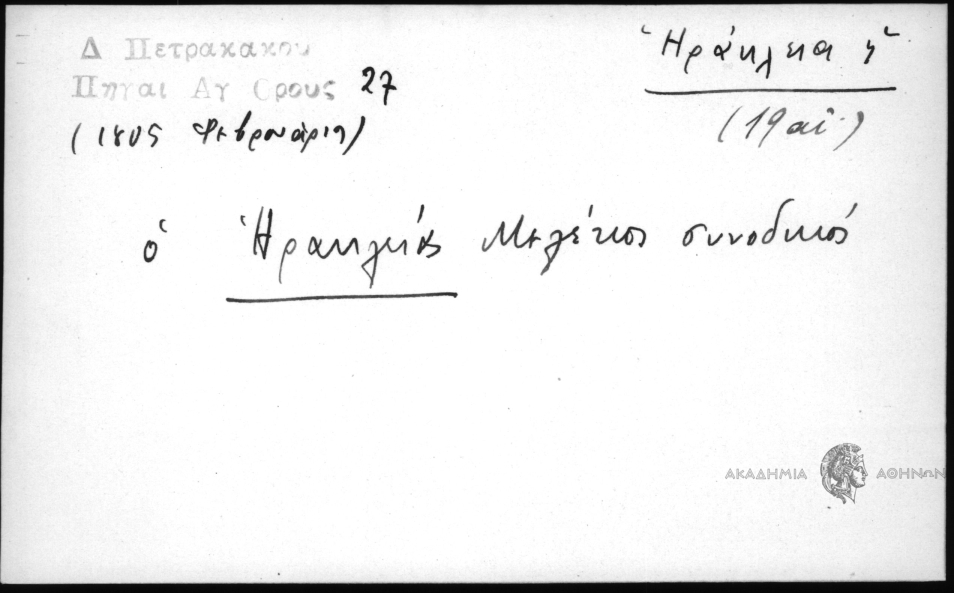 Δ Πετρακακου
Πηγαι Αγ Ορους 27
(1805 Φεβρουάριος)
Ἡράκλεια ἡ
(19 αἰ.)
ὁ Ἡρακλείας Μελέτιος συνοδικός
ΑΚΑΔΗΜΙΑ ΑΘΗΝΩΝ